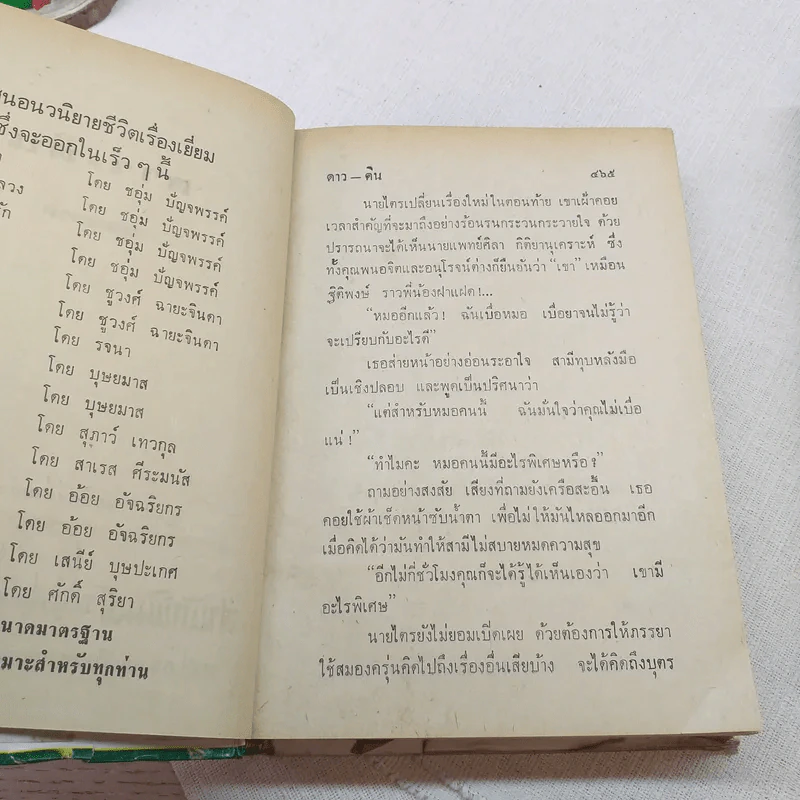 นอนวนิยายชีวิตเรื่องเยี่ยม
ซึ่งจะออกในเร็ว ๆ นี้
โดย ชอุ่ม ปัญจพรรค์
โดย ชอุ่ม ปัญจพรรค์
โดย ชอุ่ม ปัญจพรรค์
โดย ชอุ่ม ปัญจพรรค์
โดย ชูวงศ์ ฉายะจินดา
โดย ชูวงศ์ ฉายะจินดา
โดย รจนา
โดย บุษยมาส
โดย บุษยมาส
โดย สุภาว์ เทวกุล
โดย สาเรส ศีระมนัส
โดย อ้อย อัจฉริยกร
โดย อ้อย อัจฉริยกร
โดย เสนีย์ บุษปะเกศ
โดย ศักดิ์ สุริยา
นาดมาตรฐาน
มาะสำหรับทุกท่าน
ดาว – ดิน ๔๖๕
นายไตรเปลี่ยนเรื่องใหม่ในตอนท้าย เขาเฝ้าคอย
เวลาสำคัญที่จะมาถึงอย่างร้อนรนกระวนกระวายใจ ด้วย
ปรารถนาจะได้เห็นนายแพทย์ศิลา กิติยานุเคราะห์ ซึ่ง
ทั้งคุณพนอจิตและอนุโรจน์ต่างก็ยืนยันว่า “เขา” เหมือน
ฐิติพงษ์ ราวพี่น้องฝาแฝด!...
“หมออีกแล้ว! ฉันเบื่อหมอ เบื่อยาจนไม่รู้ว่า
จะเปรียบกับอะไรดี”
เธอส่ายหน้าอย่างอ่อนระอาใจ สามีทุบหลังมือ
เป็นเชิงปลอบ และพูดเป็นปริศนาว่า
“แต่สำหรับหมอคนนี้ ฉันมั่นใจว่าคุณไม่เบื่อ
แน่!”
“ทำไมคะ หมอคนนี้มีอะไรพิเศษหรือ?”
ถามอย่างสงสัย เสียงที่ถามยังเครือสะอื้น เธอ
คอยใช้ผ้าเช็ดหน้าซับน้ำตา เพื่อไม่ให้มันไหลออกมาอีก
เมื่อคิดได้ว่ามันทำให้สามีไม่สบายหมดความสุข
“อีกไม่กี่ชั่วโมงคุณก็จะได้รู้ได้เห็นเองว่า เขามี
อะไรพิเศษ”
นายไตรยังไม่ยอมเปิดเผย ด้วยต้องการให้ภรรยา
ใช้สมองครุ่นคิดไปถึงเรื่องอื่นเสียบ้าง จะได้คิดถึงบุตร